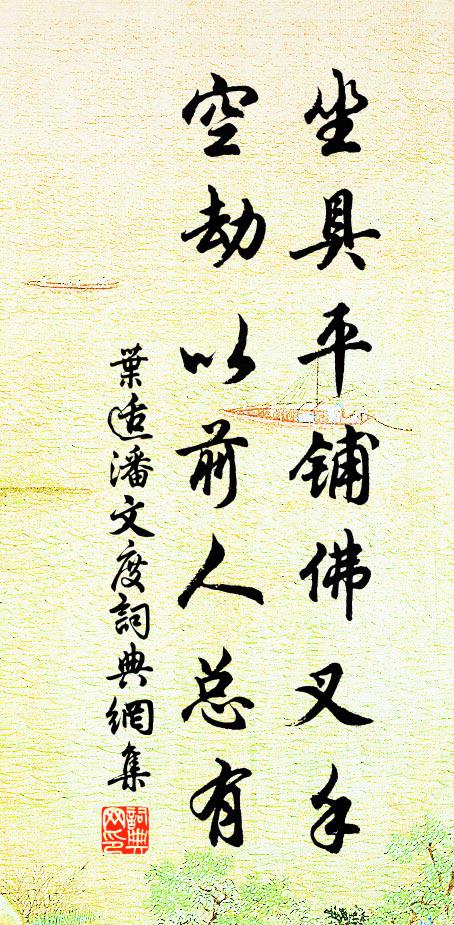 坐具平鋪佛叉手
空劫以前人总有
葉适潘文度詞典網集
詞典網印